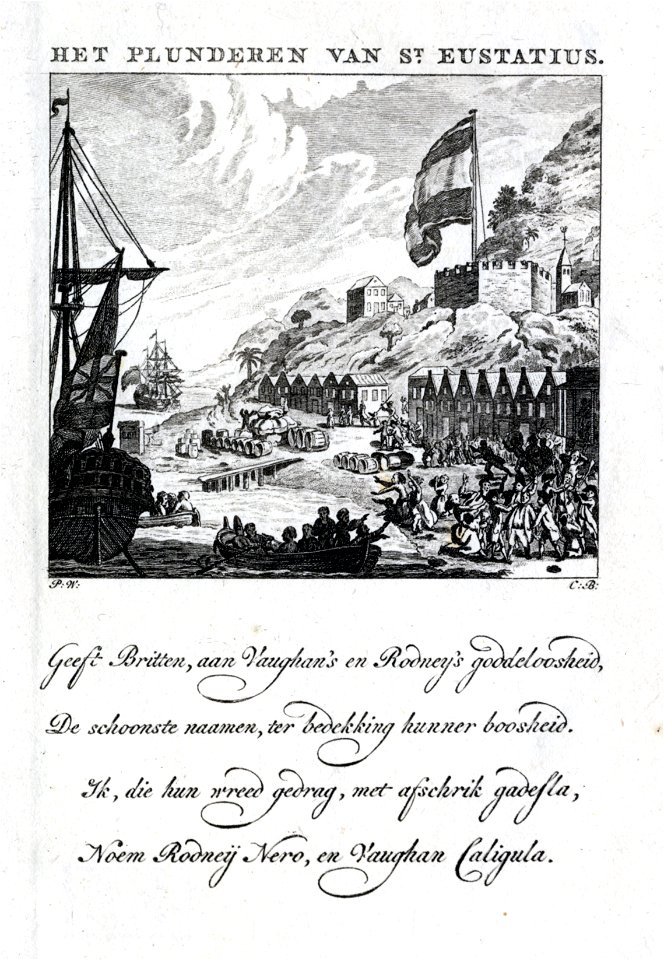 HET PLUNDEREN VAN ST. EUSTATIUS.
P: W:
C: B:
Geeft Britten, aan Vaughan's en Rodney's goddeloosheid,
De schoonste naamen, ter bedekking hunner boosheid.
Ik, die hun wreed gedrag, met afschrik gadesla,
Noem Rodneij Nero, en Vaughan Caligula.